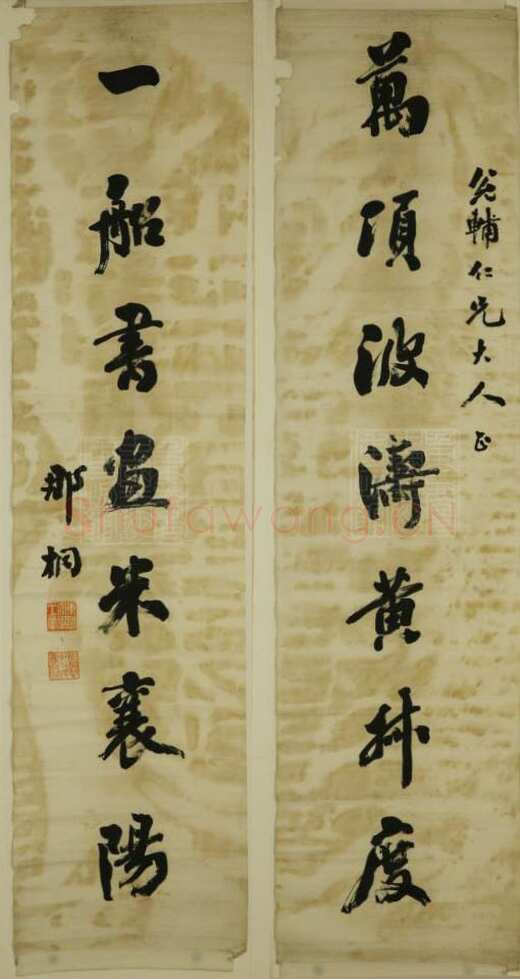 輔仁兄大人正
萬頃波濤黃叔度
一船書畫米襄陽
那桐
Shufawang.CN